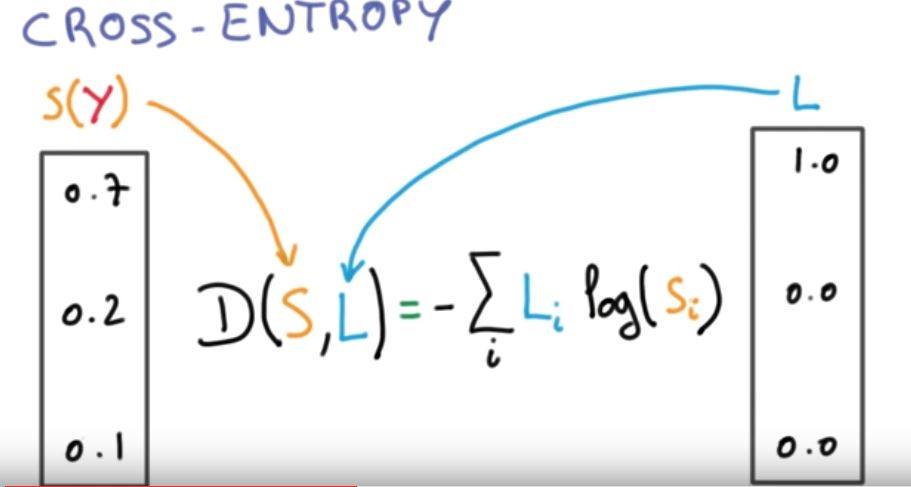 CROSS-ENTROPY
S(Y)
L
0.7
0.2
0.1
D(S,L) = - ∑i Li log(Si)
1.0
0.0
0.0